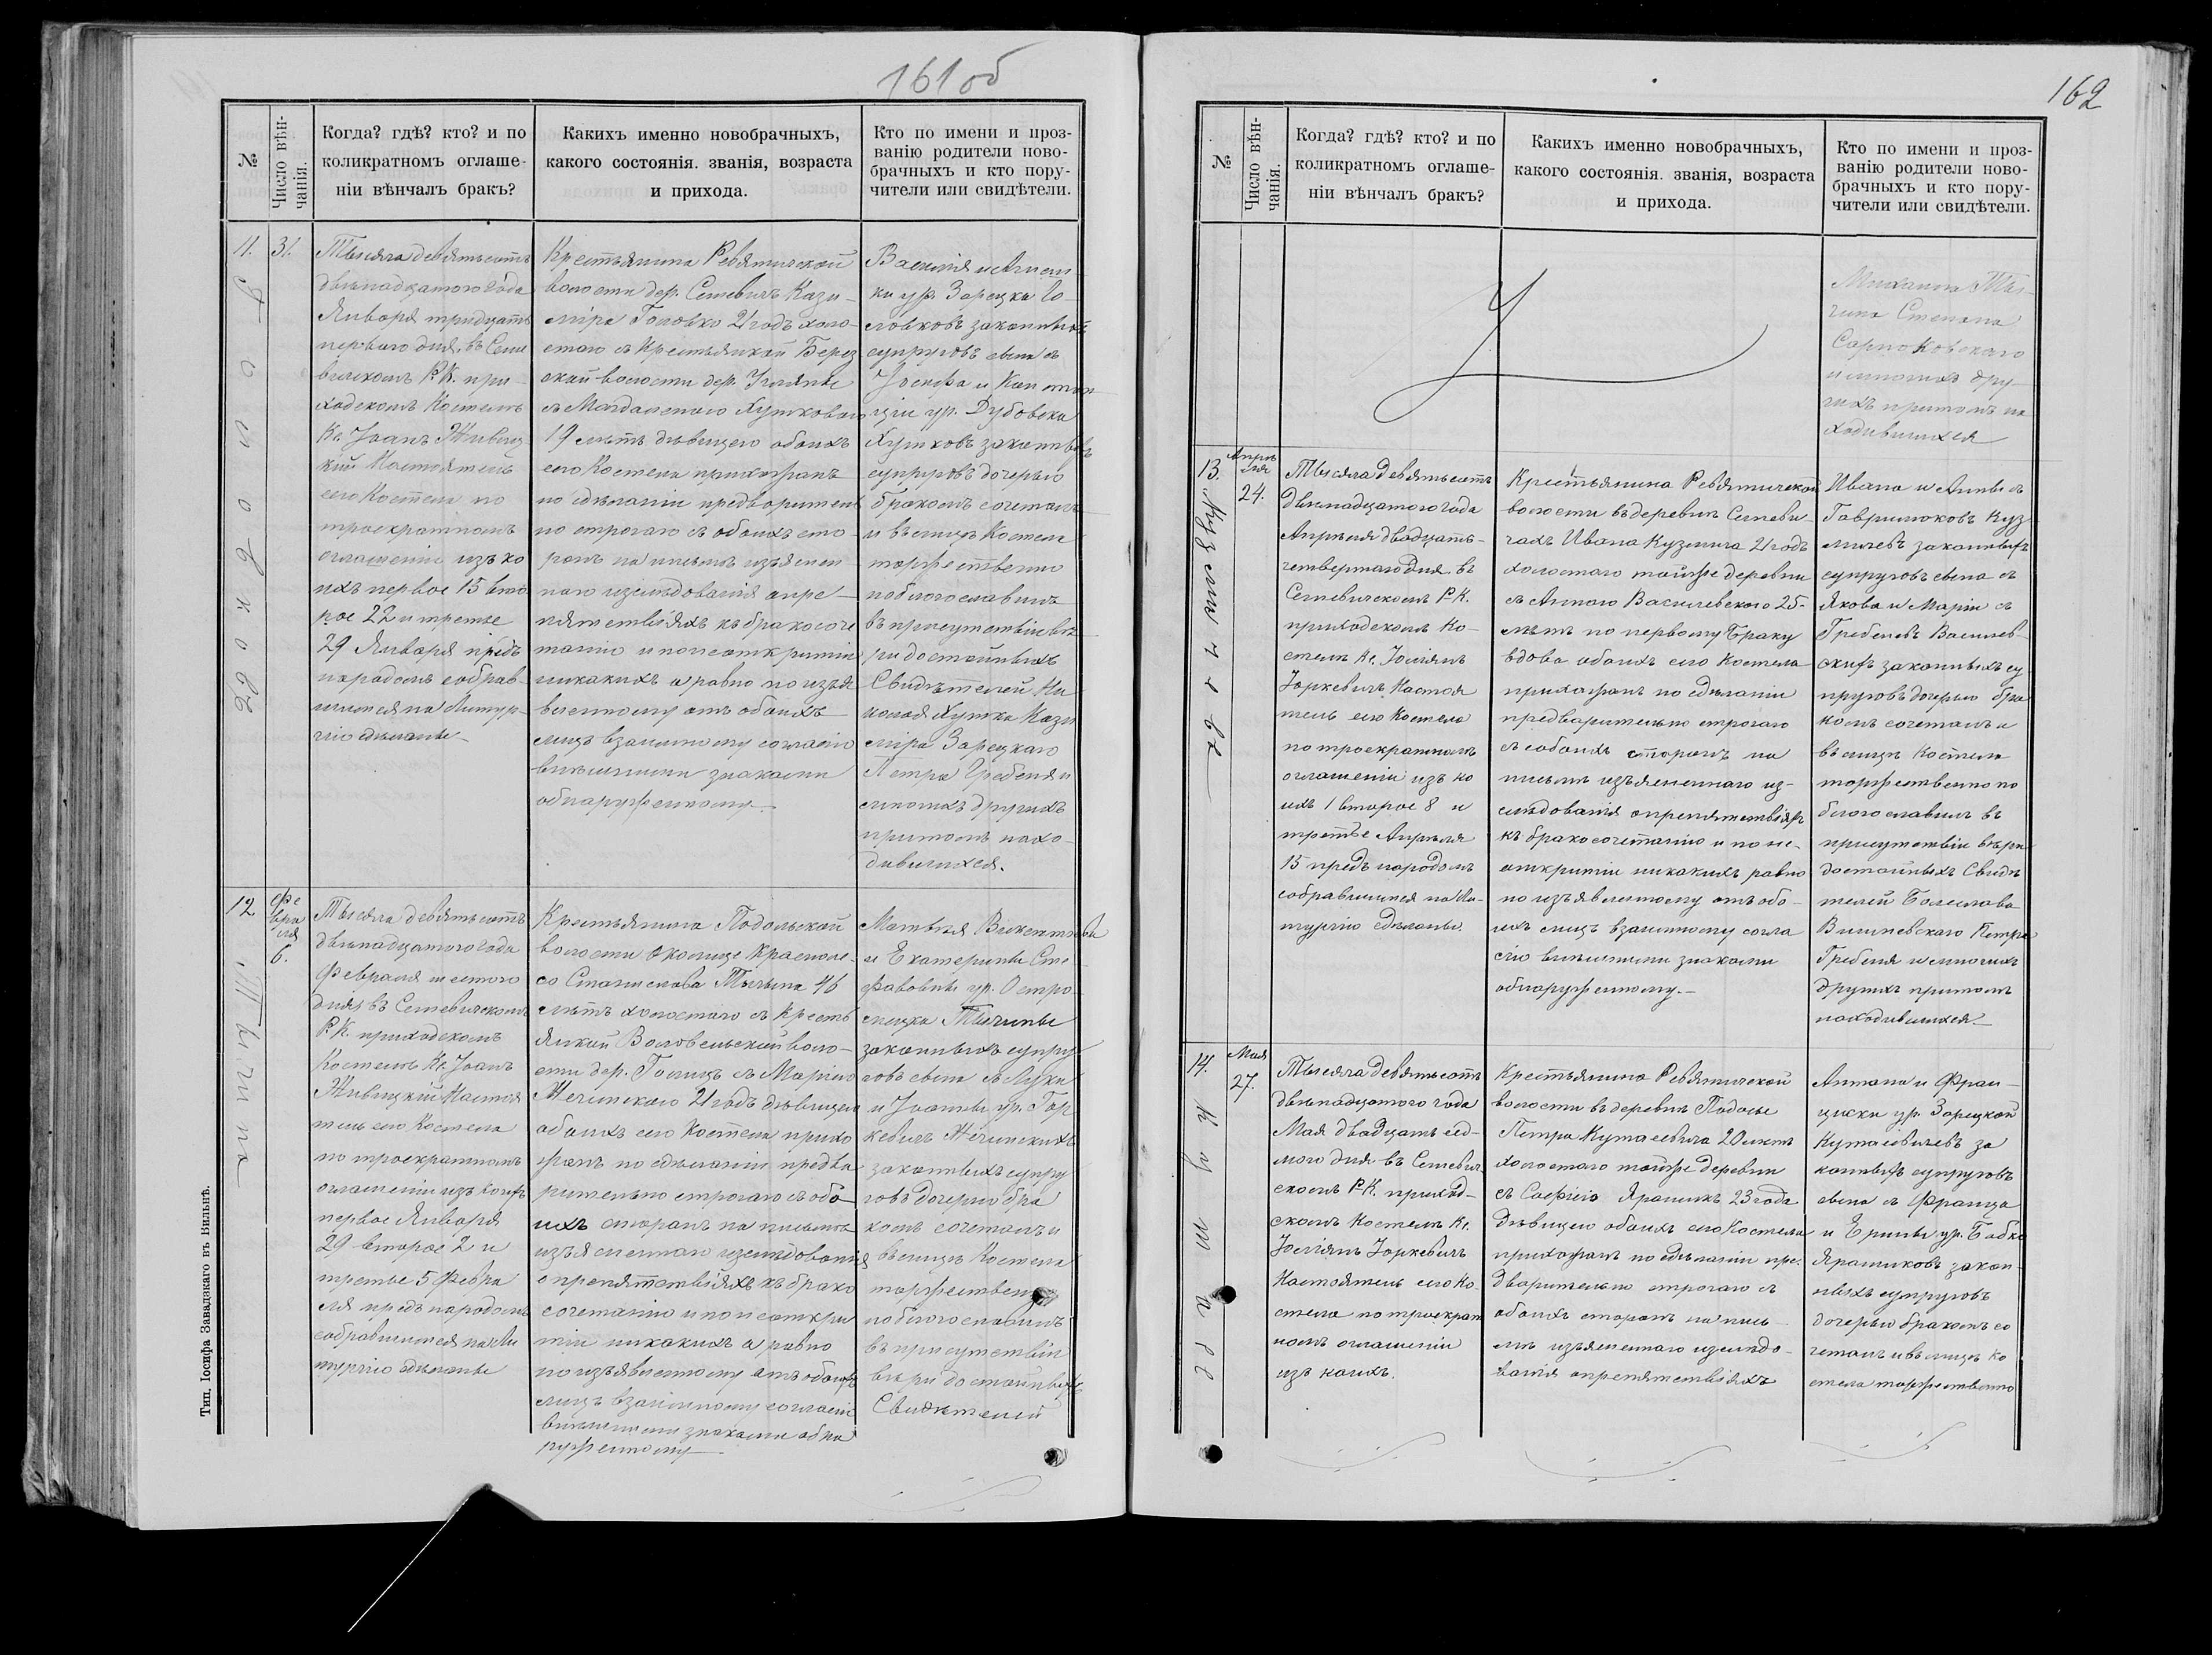 161 об
№
Число вѣнчанія.
Когда? гдѣ? кто? и по
коликратномъ оглаше-
ніи вѣнчалъ бракъ?
Какихъ именно новобрачныхъ,
какого состоянія. званія, возраста
и прихода.
Кто по имени и проз-
ванію родители ново-
брачныхъ и кто пору-
чители или свидѣтели.
11.
31.
Головковъ
Тысяча девятьсотъ
двѣнадцатого года
Января тридцать
перваго дня, въ Сеше
вичскомъ Р.К. при-
ходскомъ Костелѣ
Кс. Іоанъ Живиц
кій Настоятель
сего Костела по
троекратномъ
оглашеніи изъ ко
ихъ первое 15 вто
рое 22 и третье
29 Января предъ
народомъ собрав-
шимся на Литур-
гію сдѣланы
Крестьянина Ревятичской
волости дер. Сешевичъ Кази-
міра Головко 21 годъ холо-
стого съ Крестьянкой Берез
ской волости дер.
съ Магдаленою Хутковою
19 лѣтъ дѣвицею обоихъ
сего Костела прихожанъ
по сдѣланіи предворительно
но строгаго съ обоихъ сто-
ронъ на письмѣ изъяснен
наго изслѣдованія опре-
пятствіяхъ къ бракосоче
танію и понеоткритіи
никакихъ а равно по изъя
вленному отъ обоихъ
лицъ взаимному согласію
внѣшними знаками
обнаруженному.
Василія и Агнеш-
ки ур. Зарецка Го-
ловковъ законныхъ
супруговъ сына съ
Іосифа и Констан
ціи ур. Дубовска
Хутковъ законныхъ
супруговъ дочерью
бракомъ сочеталъ
и въ лицѣ Костела
торжественно
поблагославилъ
въ присутствіи вѣ
ри достойныхъ
Свидѣтелей Ни
колая Хутка Кази
міра Зарецкаго
Петра Гребеня и
многихъ другихъ
притомъ нахо-
дившихся.
12
Фе
вра
ля
6.
Тычина
Тысяча девятьсотъ
двѣнадцатого года
Февраля шестого
дня, въ Сешевичскомъ
Р.К. приходскомъ
Костелѣ Кс. Іоанъ
Живицкій Настоя
тель сего Костела
по троекратномъ
оглашеніи изъ коихъ
первое Января
29 второе 2 и
третье 5 Февра
ля предъ народомъ
собравшимся на Ли
тургію сдѣланы
Крестьянина Подольской
волости околице Красноле-
со Станислава Тычина 46
лѣтъ холостаго съ Кресть
янкой Воловельской воло-
сти дер. Голицъ съ Маріею
Мечинскаго 21 годъ дѣвицею
обоихъ сего Костела прихо
жанъ по сдѣланіи предва
рительно строгаго съ обо
ихъ сторонъ на письмѣ
изъясненнаго изслѣдованія
о препятствіяхъ къ брако
сочетанію и понеоткри
тіи никакихъ а равно
по изъявленному отъ обоихъ
лицъ взаимному согласію
внѣшними знаками обна
руженному
Матвѣя Викентьева
и Екатерины Сте
фановны ур. Остро
мецка Тычины
законныхъ супру
говъ сына съ Луки
и Іоанны ур. Гор
кевичъ Мечинскихъ
законныхъ супру
говъ дочерью бра
комъ сочеталъ и
въ лицѣ Костела
торжественно
поблагославилъ
въ присутствіи
вѣри достойныхъ
Свидѣтелей
Тип. Іосифа Завадзкаго въ Вильнѣ.
162
№
Число вѣнчанія.
Когда? гдѣ? кто? и по
коликратномъ оглаше-
ніи вѣнчалъ бракъ?
Какихъ именно новобрачныхъ,
какого состоянія. званія, возраста
и прихода.
Кто по имени и проз-
ванію родители ново-
брачныхъ и кто пору-
чители или свидѣтели.
Михаила Ты-
чина Степана
Сарноковского
и многихъ дру-
гихъ притомъ на
ходившихся
13.
Апрѣ
ля
24.
Кузмичевъ
Тысяча девятьсотъ
двѣнадцатого года
Апрѣля двадцать-
четвертаго дня въ
Сешевичскомъ Р-К.
приходскомъ Ко-
стелѣ Кс. Юліянъ
Юркевичъ Настоя
тель сего Костела
по троекратномъ
оглашеніи изъ ко
ихъ 1 второе 8 и
третье Апрѣля
15 предъ народомъ
собравшимся на Ли-
тургію сдѣланы.
Крестьянина Ревятичской
волости въ деревнѣ Сешеви-
чахъ Ивана Кузмича 21 годъ
холостаго тойже деревни
съ Анною Василевского 25-
лѣтъ по первому браку
вдова обоихъ сего Костела
прихожанъ по сдѣланіи
предварительно строгаго
съ обоихъ сторонъ на
письмѣ изъясненнаго из-
слѣдованія опрепятствіяхъ
къ бракосочетанію и по не-
откритіи никакихъ равно
по изъявленному отъ обо-
ихъ лицъ взаимному согла
сію внѣшними знаками
обнаруженному.-
Ивана и Анны съ
Гаврилюковъ Куз
мичевъ законныхъ
супруговъ сына съ
Якова и Маріи съ
Гребеневъ Василев-
скихъ законныхъ су
пруговъ дочерью бра
комъ сочеталъ и
въ лицѣ Костела
торжественно по
благославилъ въ
присутствіи вѣри
достойныхъ Свидѣ
телей Болеслава
Вишневскаго Петра
Гребеня и многихъ
другихъ притомъ
находившихся
14.
Мая
27.
Тысяча девятьсотъ
двѣнадцатого года
Мая двадцать сед-
мого дня въ Сешевич
скомъ Р-К. приход-
скомъ Костелѣ Кс.
Юліянъ Юркевичъ
Настоятель сего Ко-
стела по троекрат
номъ оглашеніи
изъ коихъ.
Крестьянина Ревятичской
волости въ деревнѣ Подосье
Петра Куташевича 20 лѣтъ
холостаго тойже деревни
съ Софіею Ярошикъ 23 года
дѣвицею обоихъ сего Костела
прихожанъ по сдѣланіи пре-
дварительно строгаго съ
обоихъ сторонъ на пись
мѣ изъясненнаго изслѣдо-
ванія опрепятствіяхъ
Антона и Фран-
циски ур. Зарецкой
Куташевичевъ за
конныхъ супруговъ
сына съ Франца
и Ерины ур. Бабко
Ярошиковъ закон-
ныхъ супруговъ
дочерью бракомъ со
четалъ и въ лицѣ Ко
стела торжественно